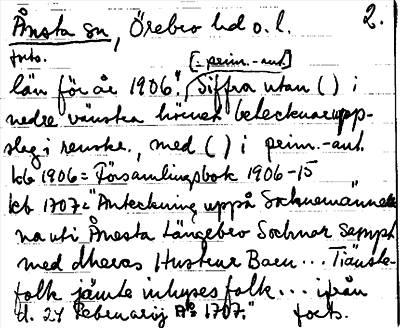 Ånsta sn, Örebro hd o. l. 2.
forts.
[= prim.-ant.]
län för år 1906". Siffra utan () i
nedre vänstra hörnet betecknar upp-
slag i renskr., med () i prim.-ant.
kb 1906 = Församlingsbok 1906-15
kb 1707 = "Anteckning uppå Socknemännen
na uti Ånesta Längebro Sochnar Sampt
med dheras Hustrur Barn... Tiänste-
folk jämte inhyses folk... ifrån
d. 27 Februarij Ao 1707." forts.